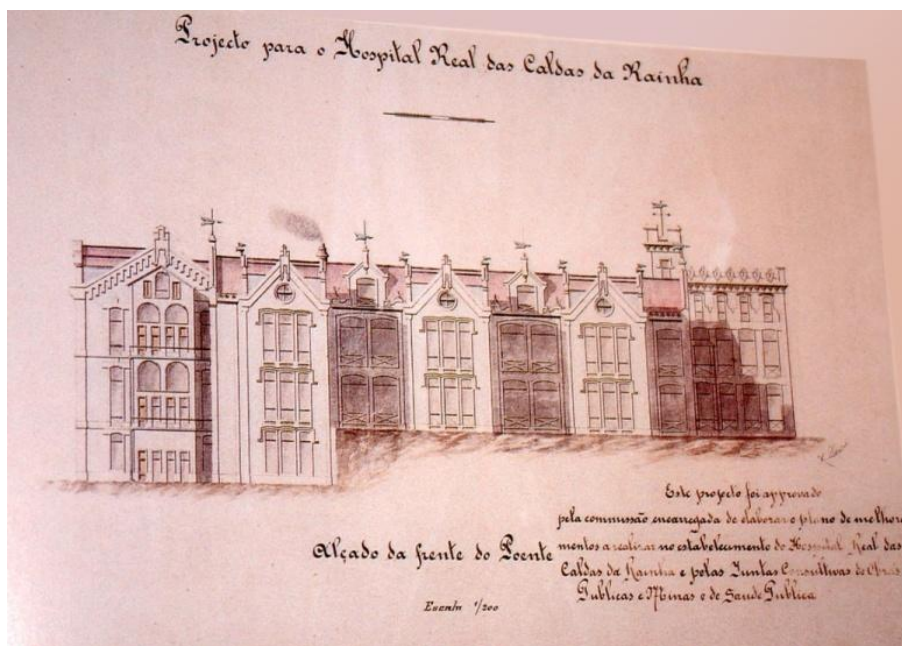 Projecto para o Hospital Real das Caldas da Rainha
Alçado da frente do Poente
Escala 1/200
Este projecto foi approvado
pela commissão encarregada de elaborar o plano de melhora
mentos a realizar no estabelecimento do Hospital Real das
Caldas da Rainha e pelas Juntas Consultivas de Obras
Publicas e Minas e de Saude Publica